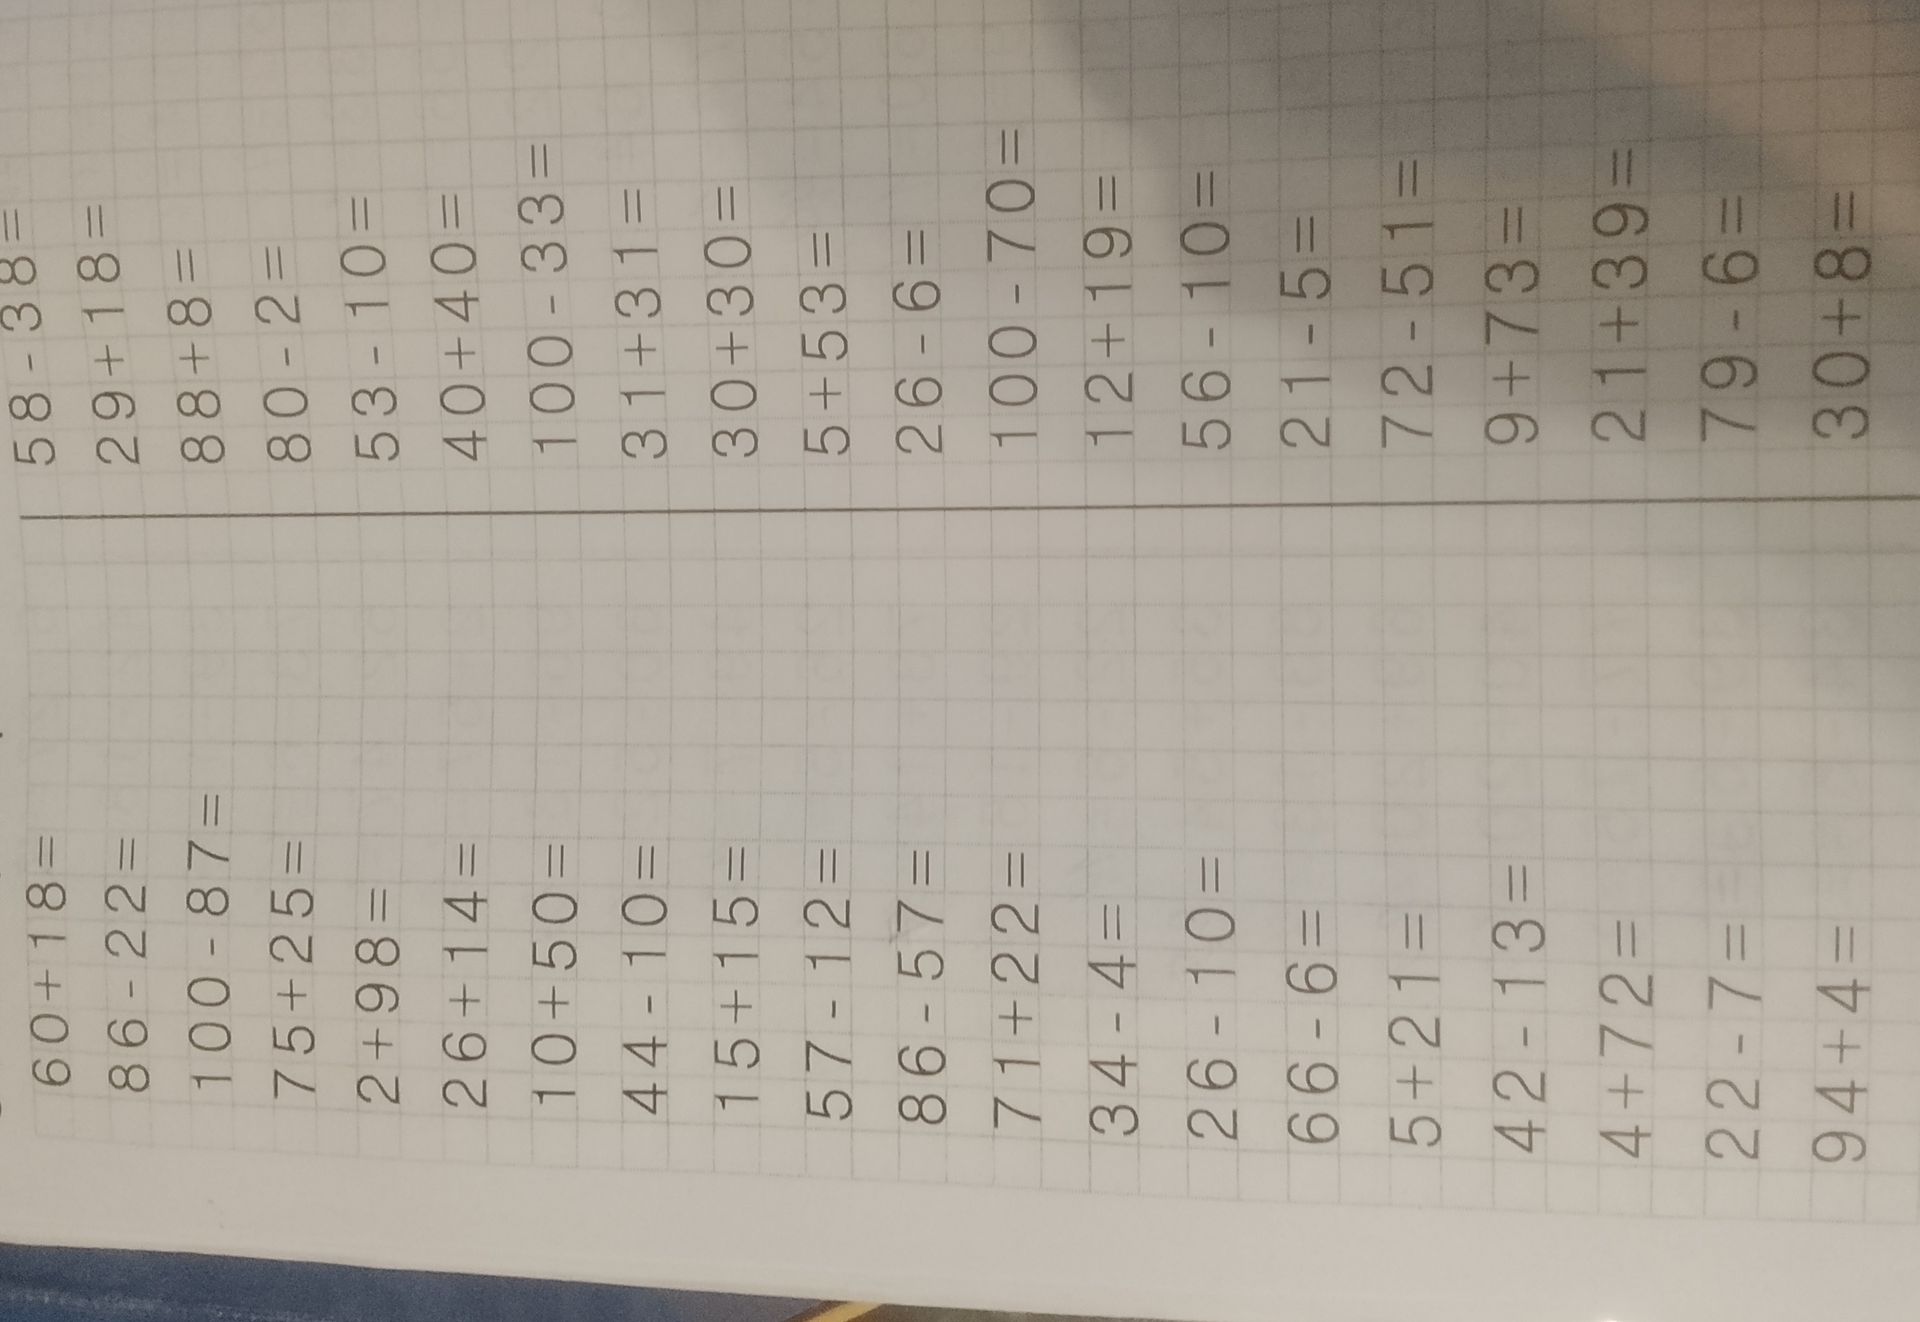 60+18=
86-22=
100-87=
75+25=
2+98=
26+14=
10+50=
44-10=
15+15=
57-12=
86-57=
71+22=
34-4=
26-10=
66-6=
5+21=
42-13=
4+72=
22-7=
94+4=
58-38=
29+18=
88+8=
80-2=
53-10=
40+40=
100-33=
31+31=
30+30=
5+53=
26-6=
100-70=
12+19=
56-10=
21-5=
72-51=
9+73=
21+39=
79-6=
30+8=